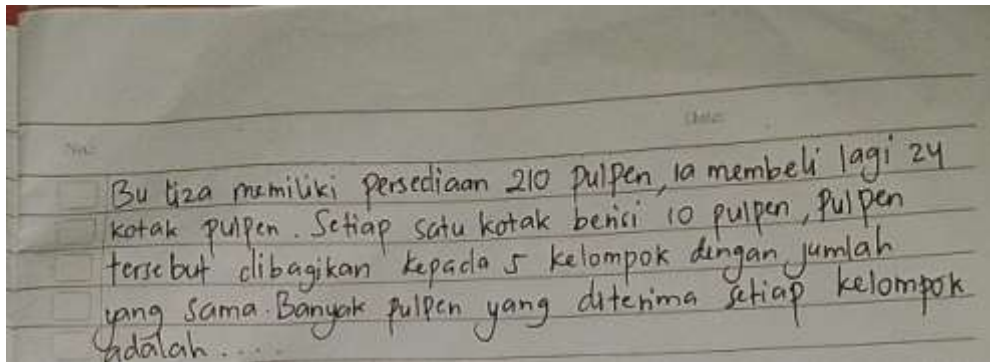 No.
Date:
Bu Liza memiliki persediaan 210 pulpen, ia membeli lagi 24
kotak pulpen. Setiap satu kotak berisi 10 pulpen, Pulpen
tersebut dibagikan kepada 5 kelompok dengan jumlah
yang sama. Banyak pulpen yang diterima setiap kelompok
adalah....